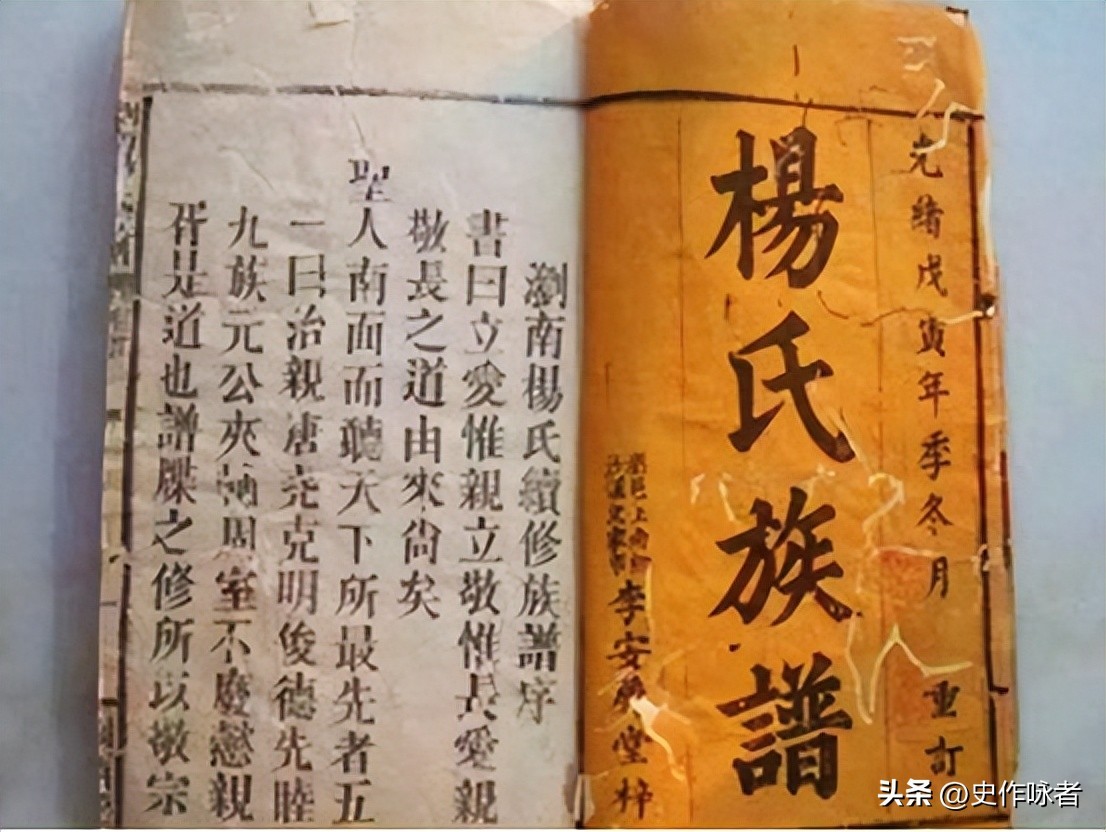 光緒戊寅年季冬月 重訂
楊氏族譜
李安堂梓
瀏南楊氏續修族譜序
書曰立愛惟親立敬惟長愛親
敬長之道由來尙矣
聖人南面而聽天下所最先者五
一曰治親唐堯克明俊德先睦
九族元公夾輔周室不廢懿親
胥是道也譜牒之修所以敬宗
头条 @史作咏者